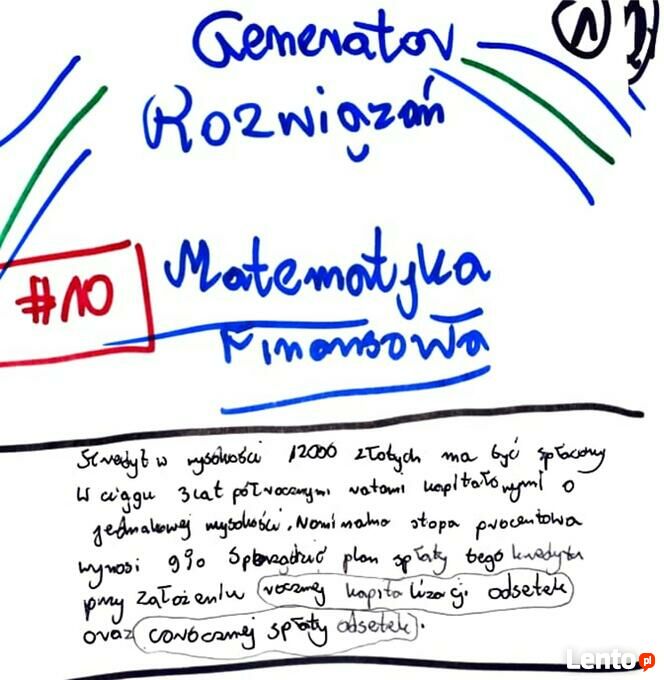 Generator
Rozwiązań
1
#10
Matematyka
Finansowa
Kredyt w wysokości 12000 złotych ma być spłacony
w ciągu 3 lat półrocznymi ratami kapitałowymi o
jednakowej wysokości. Nominalna stopa procentowa
wynosi 9% Sporządzić plan spłaty tego kredytu
przy założeniu rocznej kapitalizacji odsetek
oraz corocznej spłaty odsetek.
Lento.pl